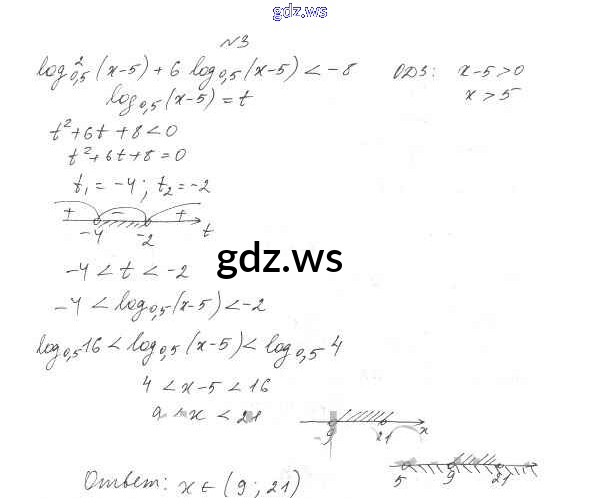 gdz.ws
№3
log²₀,₅(x-5) + 6 log₀,₅(x-5) < -8 ОДЗ: x-5>0
log₀,₅(x-5) = t x>5
t²+6t+8<0
t²+6t+8=0
t₁=-4; t₂=-2
+ - +
-4 -2 t
gdz.ws
-4 < t < -2
-4 < log₀,₅(x-5) < -2
log₀,₅16 < log₀,₅(x-5) < log₀,₅4
4 < x-5 < 16
9 < x < 21
9 21 x
5 9 21
Ответ: x ∈ (9; 21)